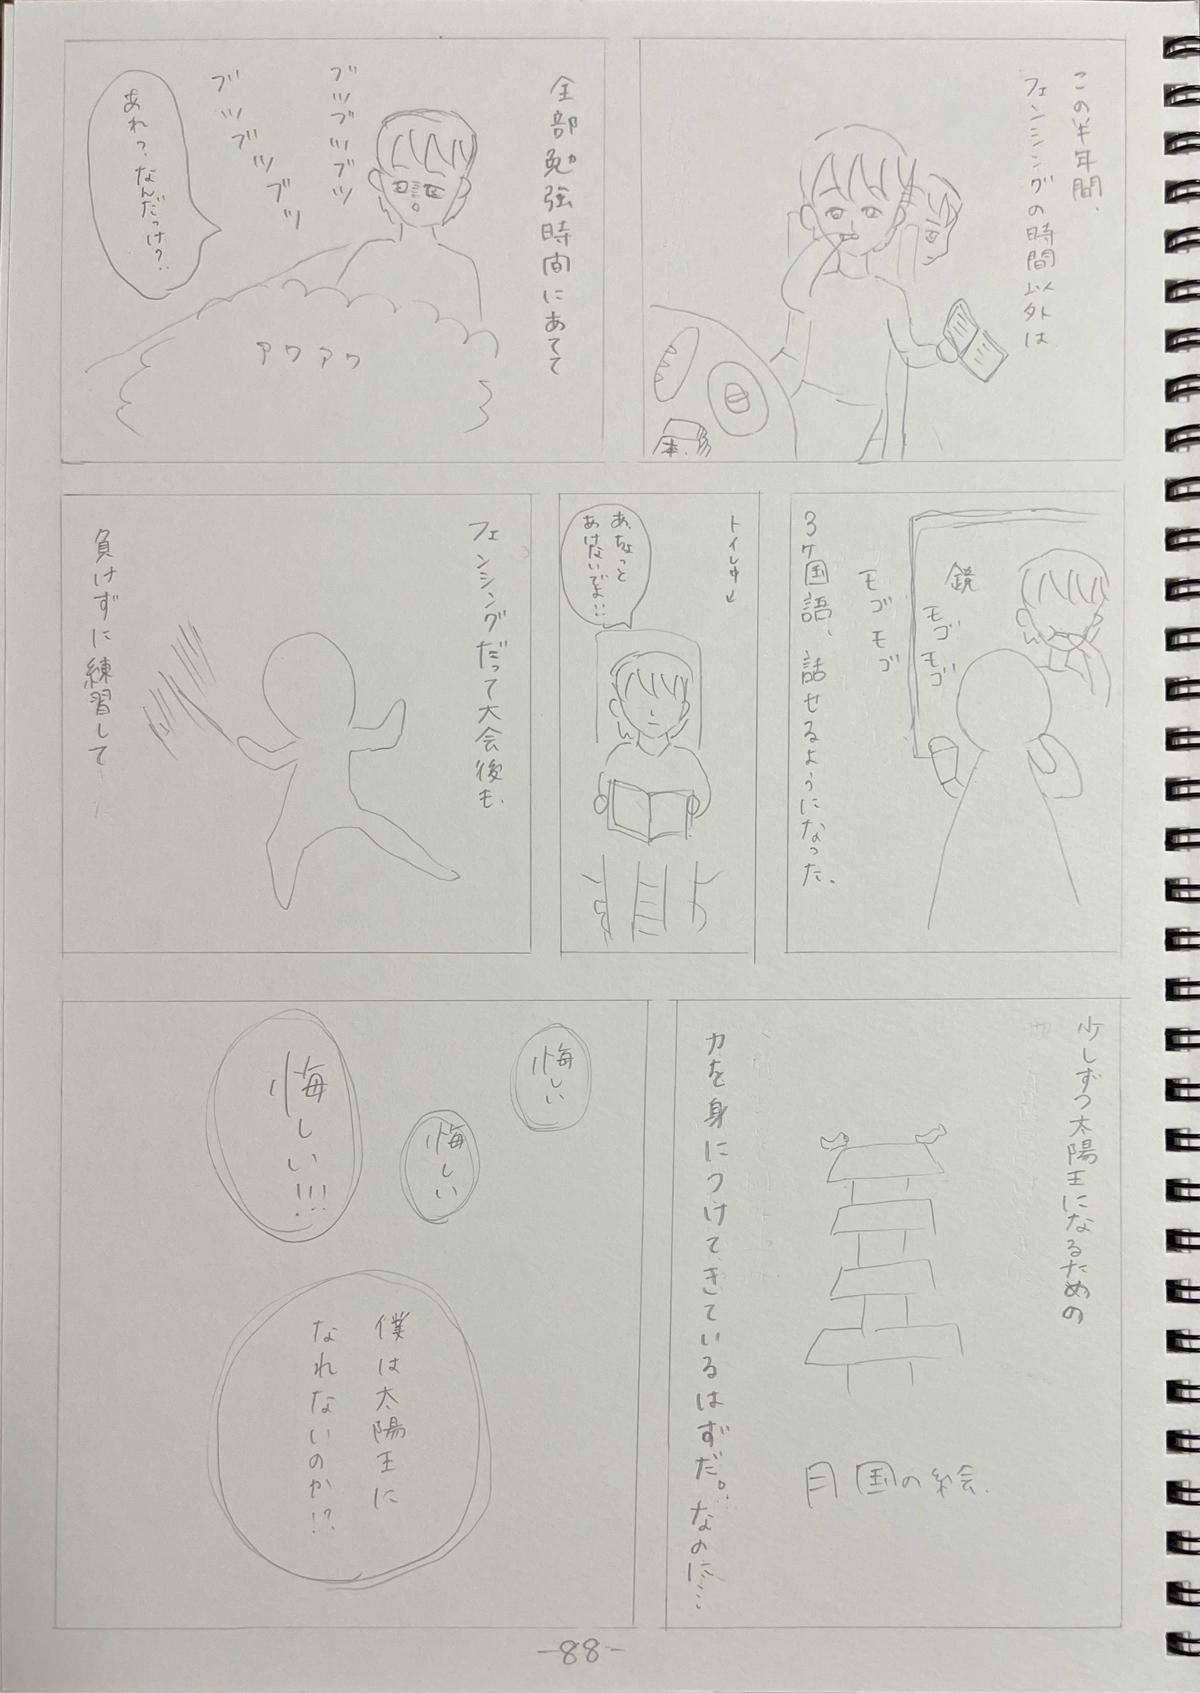 この半年間、
フェンシングの時間以外は
本
全部勉強時間にあてて
ブツブツブツ
ブツブツブツ
あれ?、なんだっけ?..
アワアワ
鏡
モゴモゴ
モゴモゴ
3ヶ国語、話せるようになった。
トイレ中↓
あ、ちょっと
あけないでよ!!
フェンシングだって大会後も、
負けずに練習して
少しずつ太陽王になるための
力を身につけてきているはずだ。なのに…
月国の絵。
悔しい
悔しい
悔しい!!!
僕は太陽王に
なれないのか!?
-88-